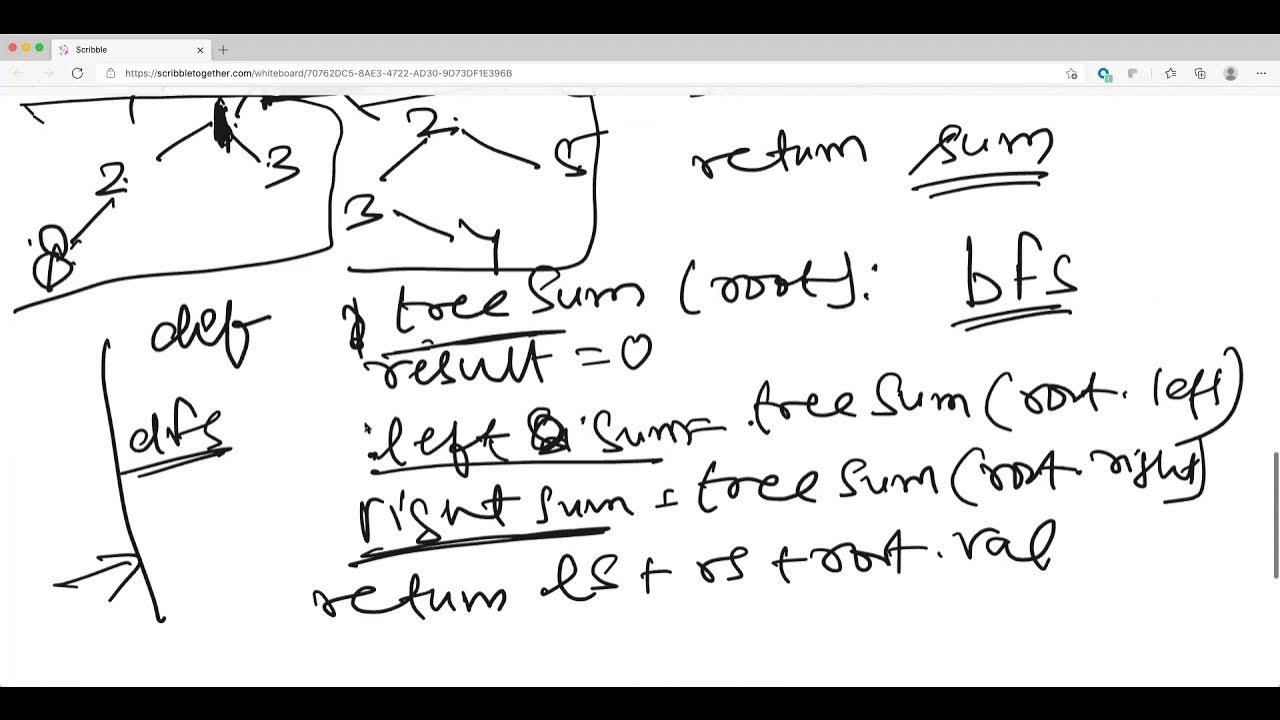 Scribble
https://scribbletogether.com/whiteboard/70762DC5-8AE3-4722-AD30-9D73DF1E396B
2
3
8
2
5
3
4
return sum
def treeSum (root): bfs
result = 0
dfs
left sum = treeSum (root. left)
right sum = treeSum (root. right)
return ls + rs + root. val